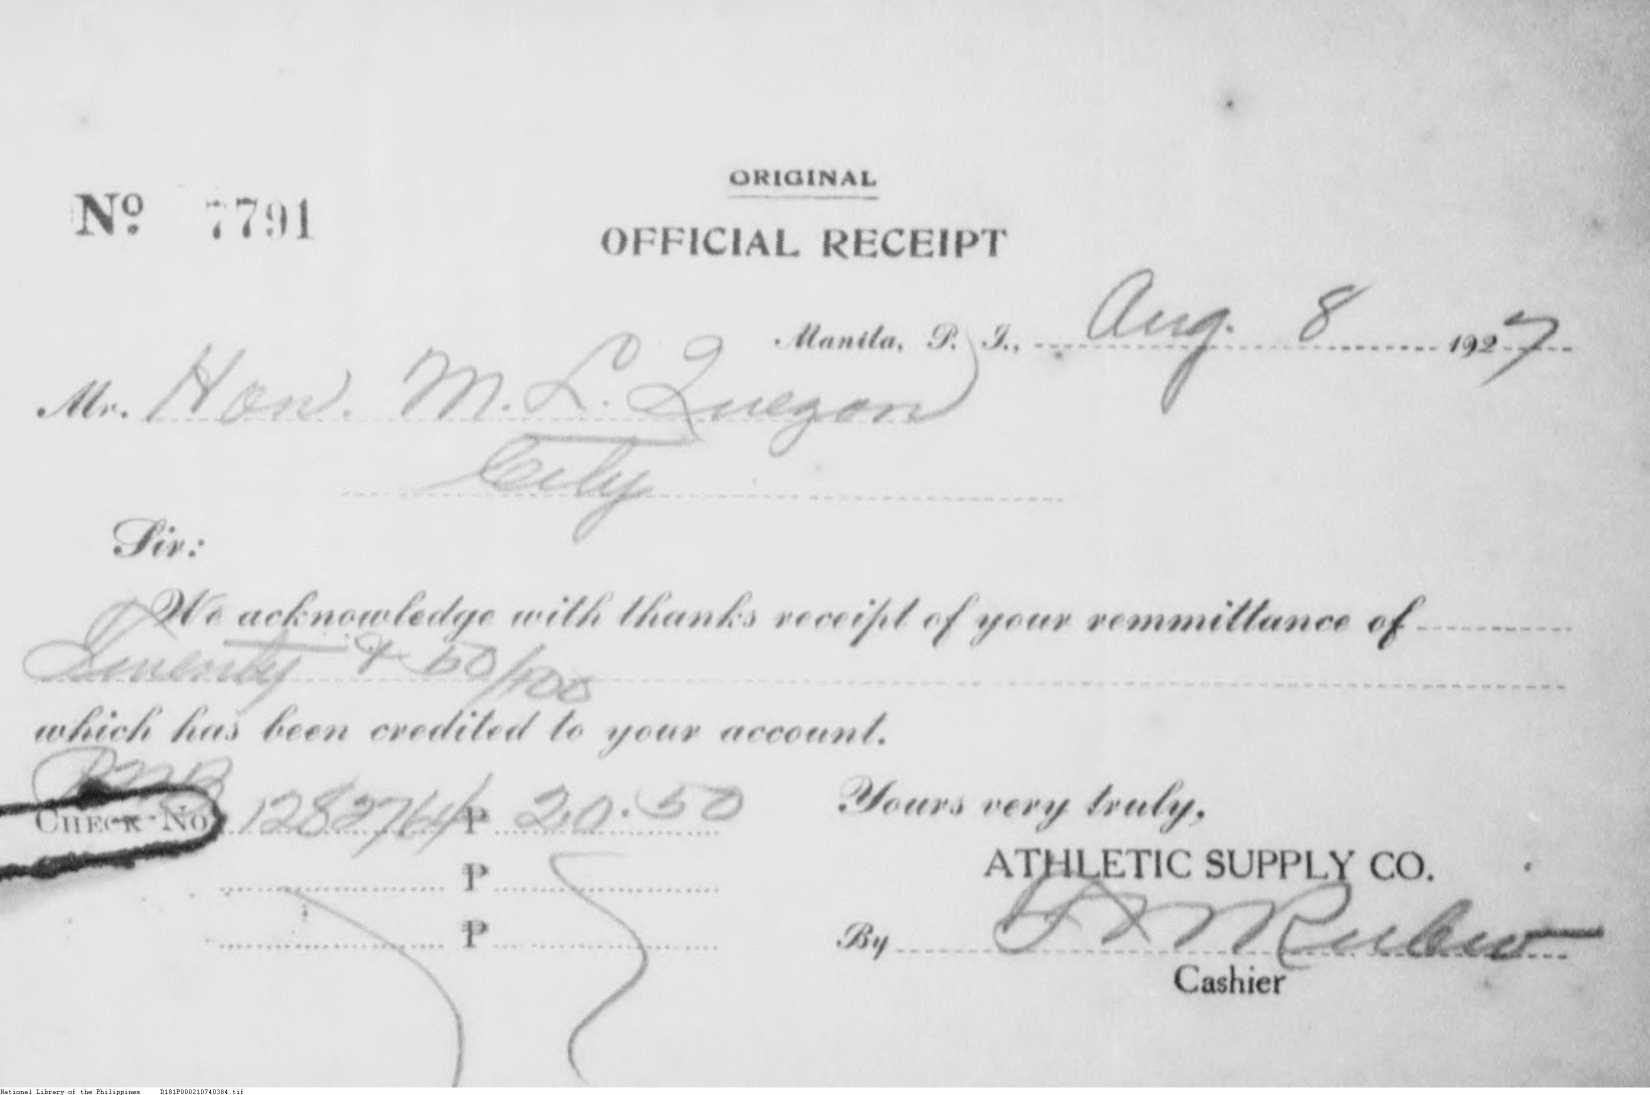 ORIGINAL
No. 7791
OFFICIAL RECEIPT
Manila, P. I., Aug. 8 1927
Mr. Hon. M. L. Quezon
City
Sir:
We acknowledge with thanks receipt of your remmittance of
Twenty & 50/100
which has been credited to your account.
PNB
CHECK No. 128276 P 20.50
P
P
Yours very truly,
ATHLETIC SUPPLY CO.
By
Cashier
National Library of the Philippines D181P000210740384.tif